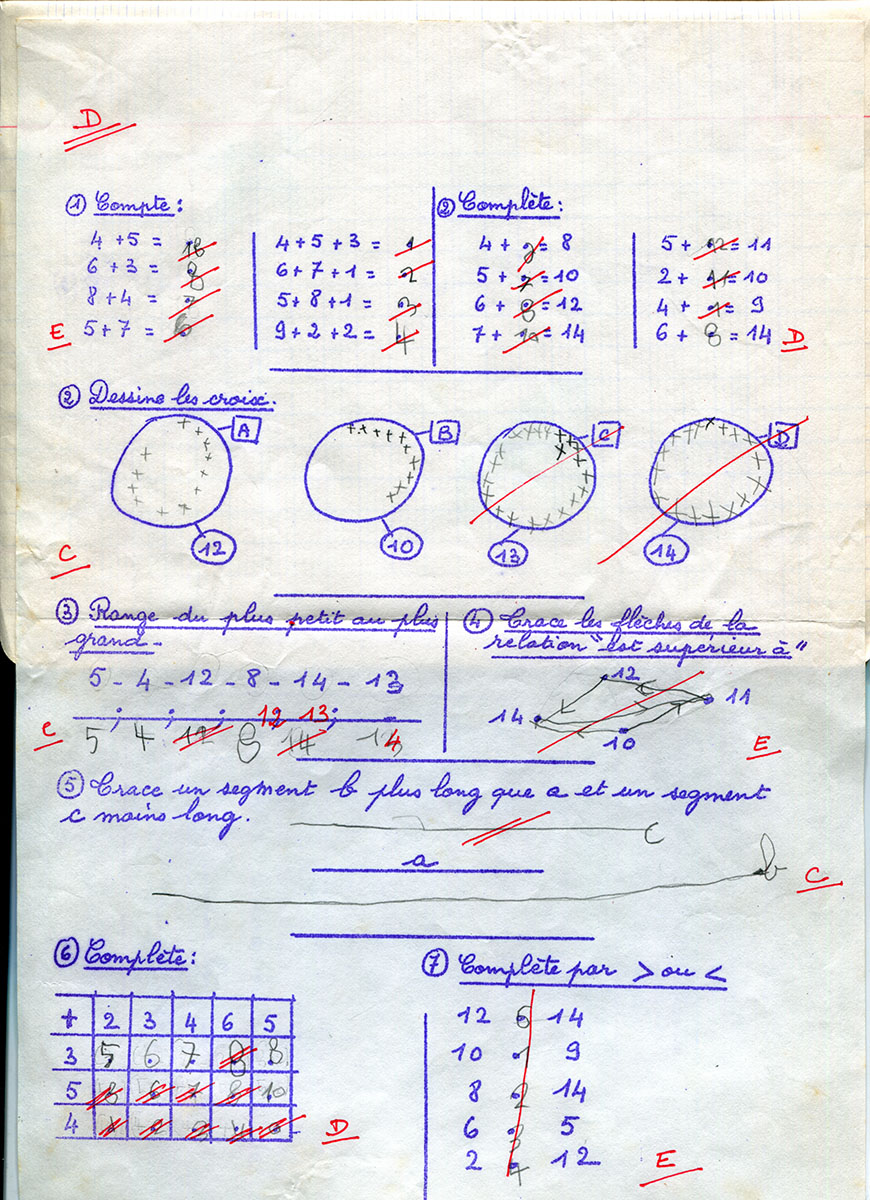 D
① Compte :
4 + 5 = 18
6 + 3 = 8
8 + 4 = 7
5 + 7 = 6
E
4 + 5 + 3 = 1
6 + 7 + 1 = 2
5 + 8 + 1 = 3
9 + 2 + 2 = 4
② Complète :
4 + = 8
5 + = 10
6 + 8 = 12
7 + = 14
5 + 12 = 11
2 + 11 = 10
4 + 1 = 9
6 + 8 = 14
D
② Dessine les croix.
A
B
C
D
12
10
13
14
C
③ Range du plus petit au plus
grand -
5 - 4 - 12 - 8 - 14 - 13
12 13
5 4 12 8 14 14
C
④ Trace les flèches de la
relation "est supérieur à"
12
14
11
10
E
⑤ Trace un segment b plus long que a et un segment
c moins long.
c
a
b
C
⑥ Complète :
+ 2 3 4 6 5
3 5 6 7 8 8
5 6 7 8 10
4
D
⑦ Complète par > ou <
12 6 14
10 1 9
8 2 14
6 3 5
2 4 12
E